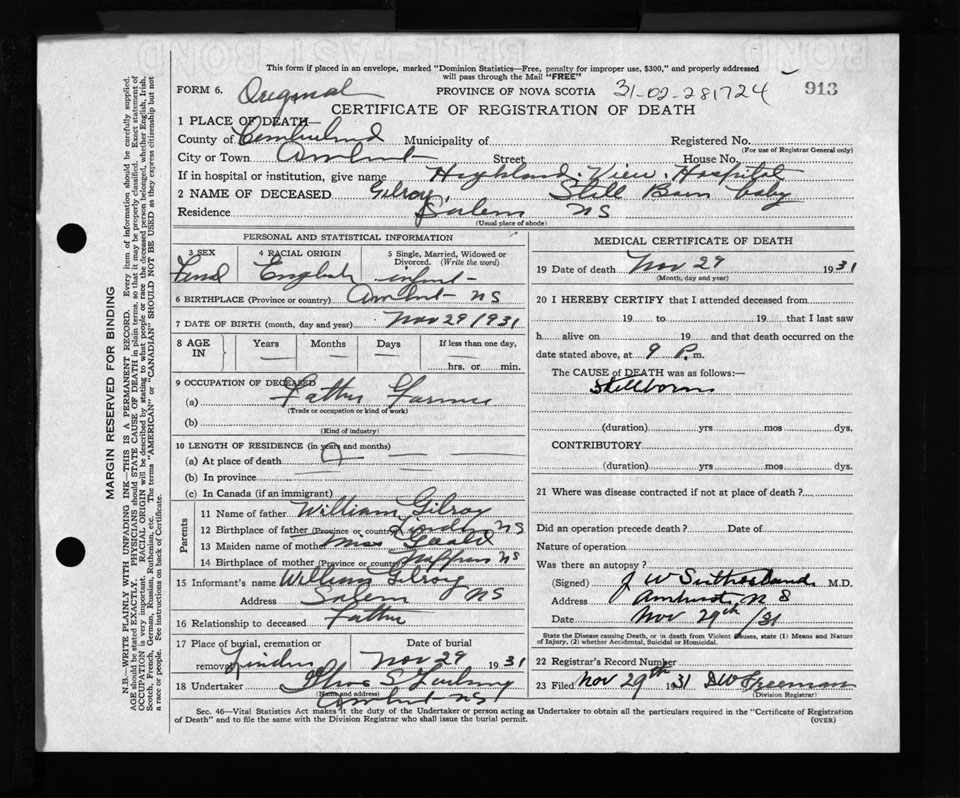 This form if placed in an envelope, marked "Dominion Statistics—Free, penalty for improper use, $300," and properly addressed
will pass through the Mail "FREE"
FORM 6. Original PROVINCE OF NOVA SCOTIA 31-02-281724 913
CERTIFICATE OF REGISTRATION OF DEATH
1 PLACE OF DEATH—
County of Cumberland Municipality of Registered No.
(For use of Registrar General only)
City or Town Amherst Street House No.
If in hospital or institution, give name Highland View Hospital
2 NAME OF DECEASED Gilroy Still Born baby
Residence Salem NS
(Usual place of abode)
PERSONAL AND STATISTICAL INFORMATION
3 SEX 4 RACIAL ORIGIN 5 Single, Married, Widowed or
Divorced. (Write the word)
English infant
6 BIRTHPLACE (Province or country) Amherst NS
7 DATE OF BIRTH (month, day and year) Nov 29 1931
8 AGE IN Years Months Days If less than one day,
hrs. or min.
9 OCCUPATION OF DECEASED
(a) Father Farmer
(Trade or occupation or kind of work)
(b)
(Kind of industry)
10 LENGTH OF RESIDENCE (in years and months)
(a) At place of death
(b) In province
(c) In Canada (if an immigrant)
Parents
11 Name of father William Gilroy
12 Birthplace of father (Province or country) NS
13 Maiden name of mother Miss
14 Birthplace of mother (Province or country) NS
15 Informant's name William Gilroy
Address Salem NS
16 Relationship to deceased Father
17 Place of burial, cremation or Date of burial
removal Nov 29 1931
18 Undertaker Thos S
(Name and address)
Amherst NS
MEDICAL CERTIFICATE OF DEATH
19 Date of death Nov 29 1931
(Month, day and year)
20 I HEREBY CERTIFY that I attended deceased from
19 to 19 that I last saw
h alive on 19 and that death occurred on the
date stated above, at 9 P. m.
The CAUSE of DEATH was as follows:—
Stillborn
(duration) yrs mos dys.
CONTRIBUTORY
(duration) yrs mos dys.
21 Where was disease contracted if not at place of death?
Did an operation precede death? Date of
Nature of operation
Was there an autopsy?
(Signed) J W Sutherland M.D.
Address Amherst N S
Date Nov 29th /31
State the Disease causing Death, or in death from Violent Causes, state (1) Means and Nature
of Injury, (2) whether Accidental, Suicidal or Homicidal.
22 Registrar's Record Number
23 Filed Nov 29th 1931 DW Freeman
(Division Registrar)
Sec. 46—Vital Statistics Act makes it the duty of the Undertaker or person acting as Undertaker to obtain all the particulars required in the "Certificate of Registration
of Death" and to file the same with the Division Registrar who shall issue the burial permit. (OVER)
MARGIN RESERVED FOR BINDING
N.B—WRITE PLAINLY WITH UNFADING INK—THIS IS A PERMANENT RECORD. Every item of information should be carefully supplied.
AGE should be stated EXACTLY. PHYSICIANS should STATE CAUSE OF DEATH in plain terms, so that it may be properly classified. Exact statement of
OCCUPATION is very important. RACIAL ORIGIN will be described by stating to what people or race the deceased person belonged, whether English, Irish,
Scotch, French, German, Russian, Ruthenian, etc. The terms "AMERICAN" or "CANADIAN" SHOULD NOT BE USED as they express citizenship but not
a race or people. See instructions on back of Certificate.